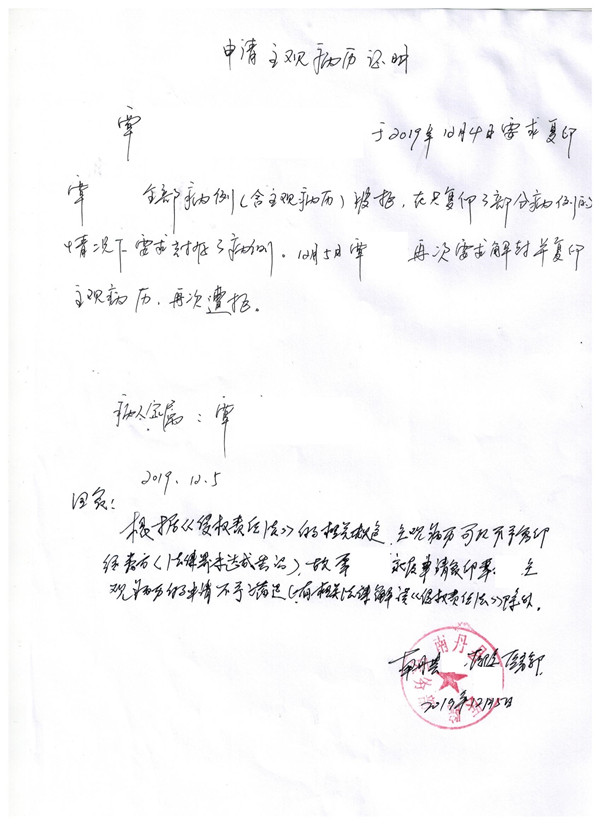 申请主观病历证明
覃 于2019年12月4日要求复印
覃 全部病例(含主观病历)被拒,在只复印了部分病例的
情况下要求封存了病例。12月5日覃 再次要求解封并复印
主观病历,再次遭拒。
病人家属:覃
2019.12.5
回复:
根据《侵权责任法》的相关 主观病历可以不予复印
给患方(法律界未达成共识),故覃 家属申请复印覃 主
观病历的申请不予 (有相关法律解读《侵权责任法》除外。
南丹
医务部
2019年12月5日